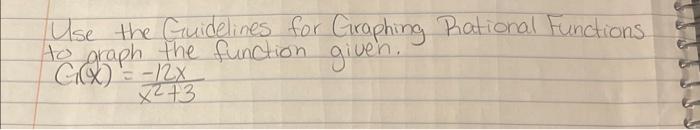 Use the Guidelines for Graphing Rational Functions
to graph the function given.
G(x) = -12x
x²+3